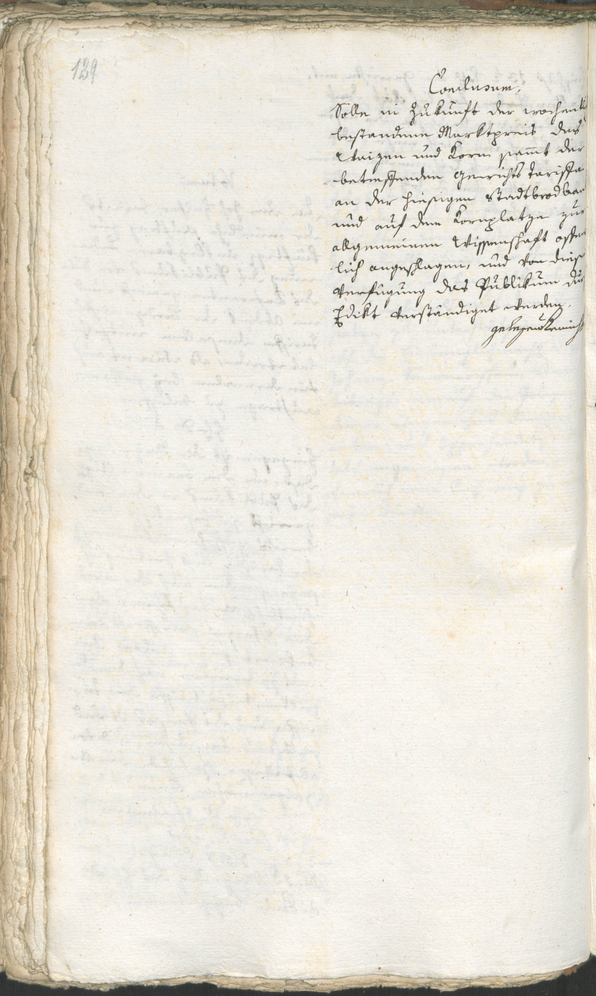 139
Conclusum.
Solle in Zukunft der wochentl
bestandene Marktpreis des
Waizen und Korn sammt der
betreffenden Gewichts Tariffe
an der hiesigen Stadtbrodban
und auf dem Kornplatze zur
allgemeinen Wissenschaft öffent
lich angeschlagen, und von diese
Verfügung das Publikum du
Edikt verständiget werden.